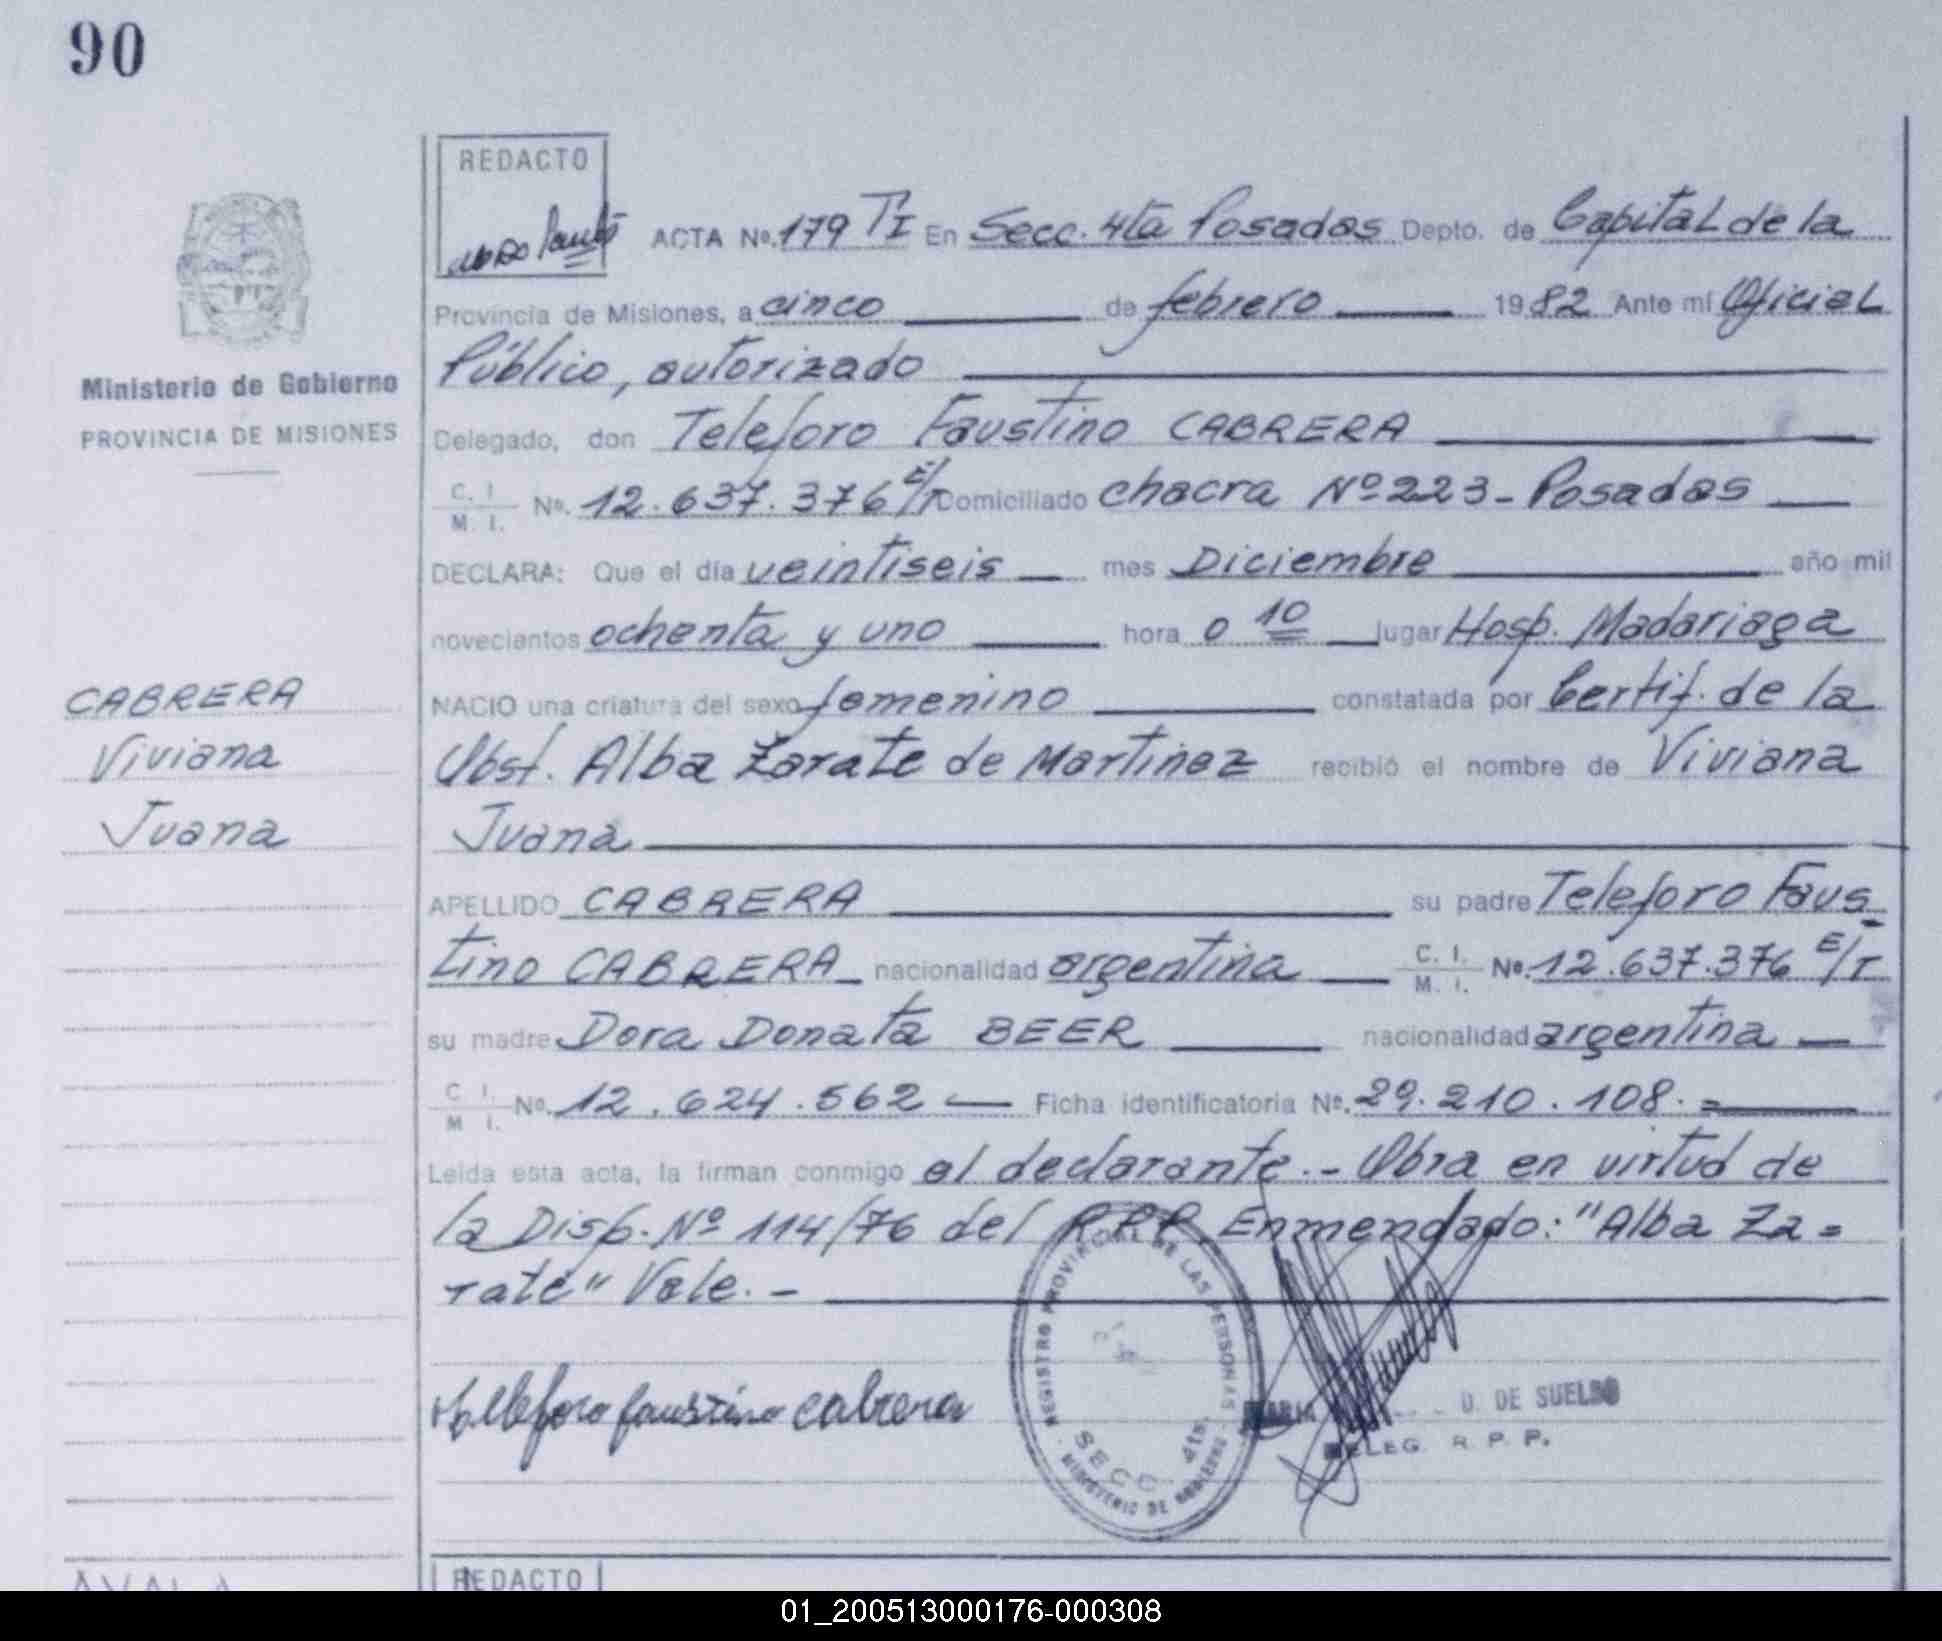 90
REDACTO
ACTA Nº. 179 TI En Secc. 4ta Posadas Depto. de Capital de la
Provincia de Misiones, a cinco de febrero 1982 Ante mí Oficial
Público, autorizado
Ministerio de Gobierno
PROVINCIA DE MISIONES
Delegado, don Teleforo Faustino CABRERA
C. I.
M. I. Nº. 12.637.376 E/T Domiciliado chacra Nº 223 - Posadas
DECLARA: Que el día veintiseis mes Diciembre año mil
novecientos ochenta y uno hora 0 10 lugar Hosp. Madariaga
CABRERA
Viviana
Juana
NACIO una criatura del sexo femenino constatada por Certif. de la
Obst. Alba Zarate de Martinez recibió el nombre de Viviana
Juana
APELLIDO CABRERA su padre Teleforo Faus
tino CABRERA nacionalidad argentina C. I. M. I. Nº. 12.637.376 E/T
su madre Dora Donata BEER nacionalidad argentina
C. I.
M. I. Nº. 12.624.562 Ficha identificatoria Nº. 29.210.108.=
Leída esta acta, la firman conmigo el declarante.- Obra en virtud de
la Disp. Nº 114/76 del R.P.P. Enmendado: "Alba Za=
rate" Vale.-
REGISTRO PROVINCIAL DE LAS PERSONAS
SECC. 4ta.
MINISTERIO DE GOBIERNO
faustino cabrera
MARIA D. DE SUELDO
DELEG. R. P. P.
REDACTO
01_200513000176-000308